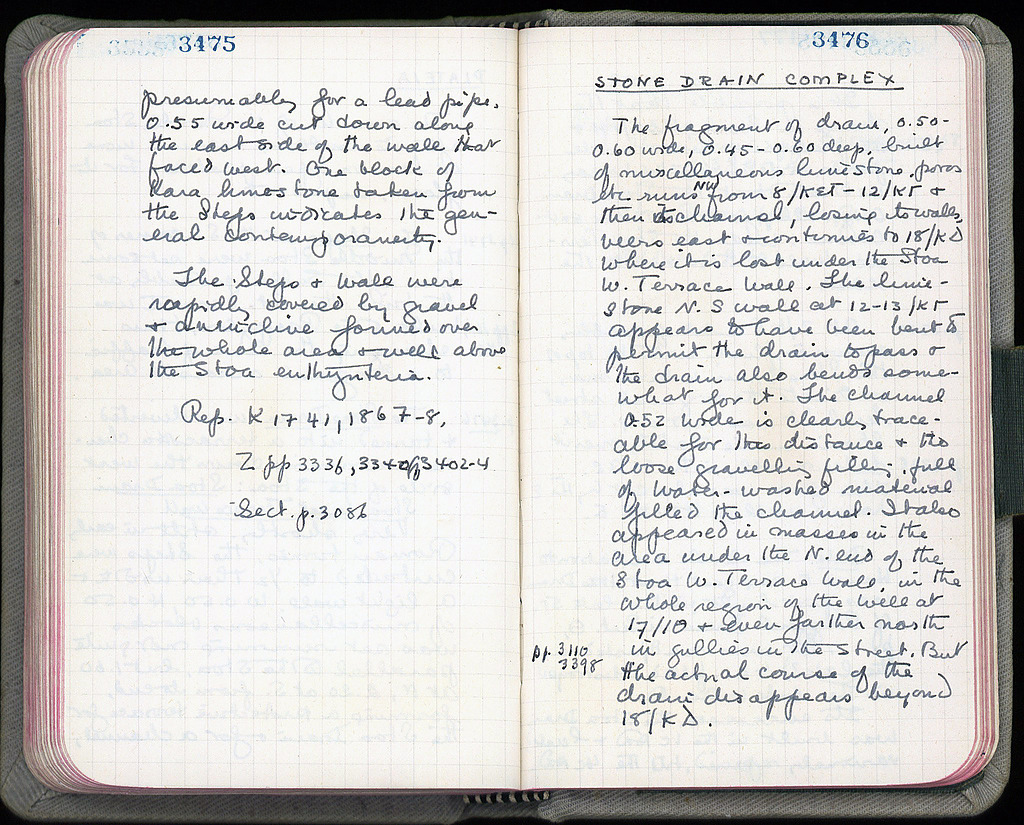 3475
presumably for a lead pipe.
0.55 wide cut down along
the east side of the wall that
faced west. One block of
Kara limestone taken from
the Steps indicates the gen-
eral contemporaneity.
The Steps & wall were
rapidly covered by gravel
& an incline formed over
the whole area & well above
the Stoa euthynteria.
Rep. K 1741, 1867-8,
Z pp 3336, 3402-4
Sect. p. 3086
3476
STONE DRAIN COMPLEX
The fragment of drain, 0.50-
0.60 wide, 0.45-0.60 deep, built
of miscellaneous limestone, poros
etc runs NW from 8/KET-12/KT &
then its channel, losing its walls,
veers east & continues to 18/KΔ
where it is lost under the Stoa
W. Terrace Wall. The lime-
stone N. S wall at 12-13/KT
appears to have been bent to
permit the drain to pass &
the drain also bends some-
what for it. The channel
0.52 wide is clearly trace-
able for this distance & the
loose gravelly filling, full
of water-washed material
filled the channel. It also
appeared in masses in the
area under the N. end of the
Stoa W. Terrace Wall, in the
whole region of the well at
17/ΙΘ & even farther north
pp. 3110
3398
in gullies in the street. But
the actual course of the
drain disappears beyond
18/KΔ.